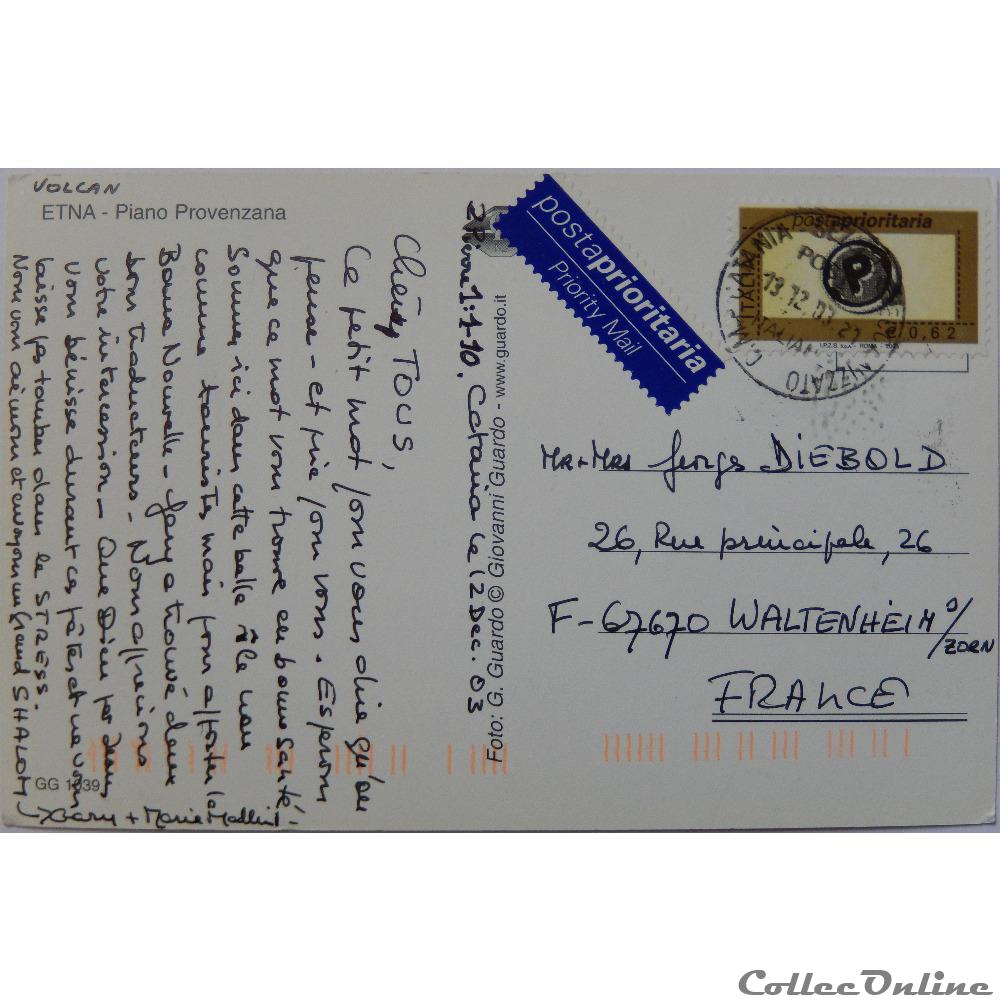 VOLCAN
ETNA - Piano Provenzana
2 Pierre 1:1-10. Catania le 12 Dec. 03
Chers TOUS,
Ce petit mot pour vous dire qu'on
pense - et prie pour vous. Espérons
que ce mot vous trouve en bonne santé.
Sommes ici dans cette belle île non
comme touristes mais pour apporter la
Bonne Nouvelle - Gary a trouvé deux
bons traducteurs - Nous apprécions
votre intercession - Que Dieu
vous bénisse durant ces fêtes et ne vous
laisse pas tomber dans le STRESS.
Nous vous aimons et envoyons un grand SHALOM
Gary + Marie
GG 1039
Foto: G. Guardo © Giovanni Guardo - www.guardo.it
postaprioritaria
Priority Mail
postaprioritaria
ITALIA
P
€ 0,62
I.P.Z.S. S.p.A. - ROMA - 2003
13.12.03.21
Mr+Mrs Georges DIEBOLD
26, Rue principale, 26
F-67670 WALTENHEIM s/
ZORN
FRANCE
CollecOnline